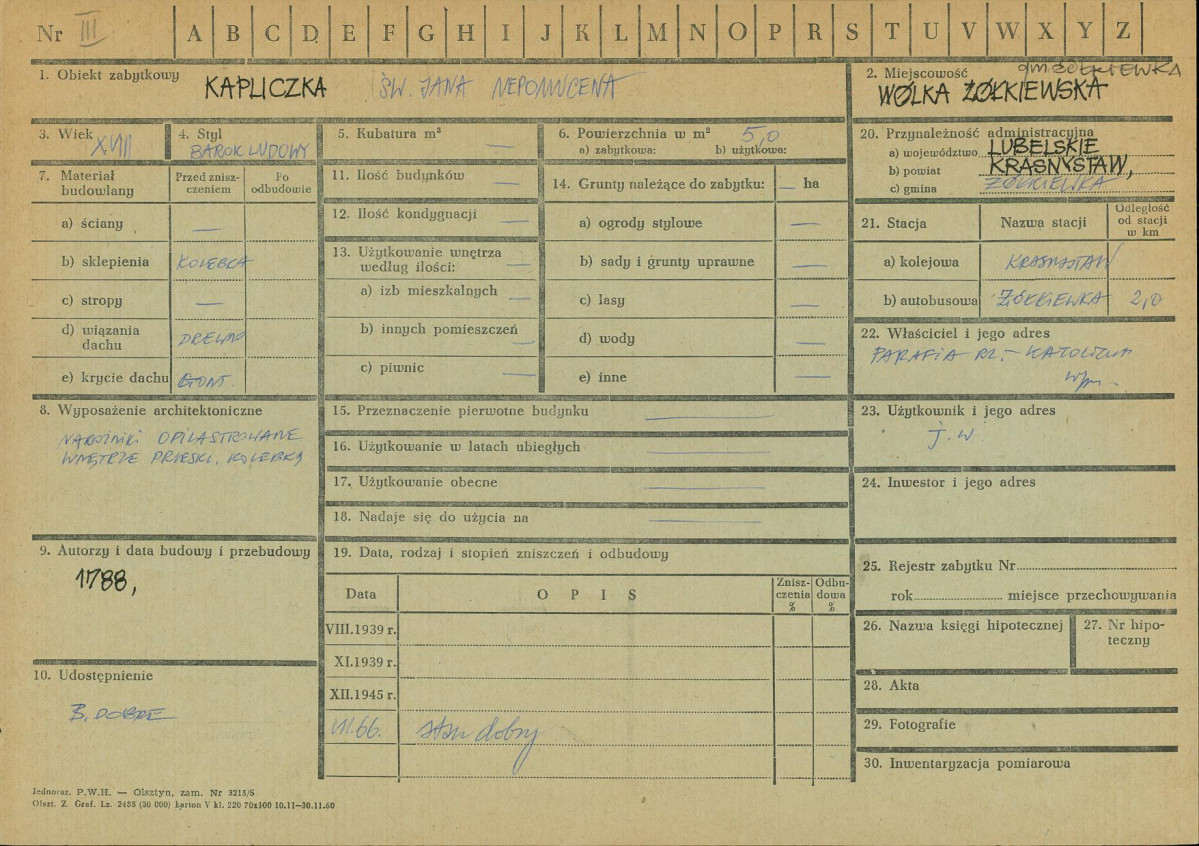 Nr III A B C D E F G H I J K L M N O P R S T U V W X Y Z
1. Obiekt zabytkowy
KAPLICZKA ŚW. JANA NEPOMUCENA
2. Miejscowość
gm. ŻÓŁKIEWKA
WÓLKA ŻÓŁKIEWSKA
3. Wiek
XVIII
4. Styl
BAROK LUDOWY
5. Kubatura m³
—
6. Powierzchnia w m² 5,0
a) zabytkowa: b) użytkowa:
7. Materiał budowlany
Przed zniszczeniem
Po odbudowie
a) ściany —
b) sklepienia KOLEBKA
c) stropy —
d) wiązania dachu DREWNO
e) krycie dachu GONT.
8. Wyposażenie architektoniczne
NAROŻNIKI OPILASTROWANE
WNĘTRZE PRZESKL. KOLEBKĄ
9. Autorzy i data budowy i przebudowy
1788,
10. Udostępnienie
B. DOBRE
11. Ilość budynków —
12. Ilość kondygnacji —
13. Użytkowanie wnętrza
według ilości: —
a) izb mieszkalnych —
b) innych pomieszczeń —
c) piwnic —
14. Grunty należące do zabytku: — ha
a) ogrody stylowe —
b) sady i grunty uprawne —
c) lasy —
d) wody —
e) inne —
15. Przeznaczenie pierwotne budynku —
16. Użytkowanie w latach ubiegłych —
17. Użytkowanie obecne —
18. Nadaje się do użycia na —
19. Data, rodzaj i stopień zniszczeń i odbudowy
Data
O P I S
Zniszczenia %
Odbudowa %
VIII.1939 r.
XI.1939 r.
XII.1945 r.
VII.66. stan dobry
20. Przynależność administracyjna
a) województwo LUBELSKIE
b) powiat KRASNYSTAW,
c) gmina ŻÓŁKIEWKA
21. Stacja
Nazwa stacji
Odległość od stacji w km
a) kolejowa KRASNYSTAW
b) autobusowa ŻÓŁKIEWKA 2,0
22. Właściciel i jego adres
PARAFIA RZ.-KATOLICKA
23. Użytkownik i jego adres
J. W
24. Inwestor i jego adres
25. Rejestr zabytku Nr
rok miejsce przechowywania
26. Nazwa księgi hipotecznej
27. Nr hipoteczny
28. Akta
29. Fotografie
30. Inwentaryzacja pomiarowa
Jednoraz. P.W.H. — Olsztyn, zam. Nr 3215/S
Olszt. Z. Graf. Lz. 2435 (30 000) karton V kl. 220 70x100 10.11—30.11.60